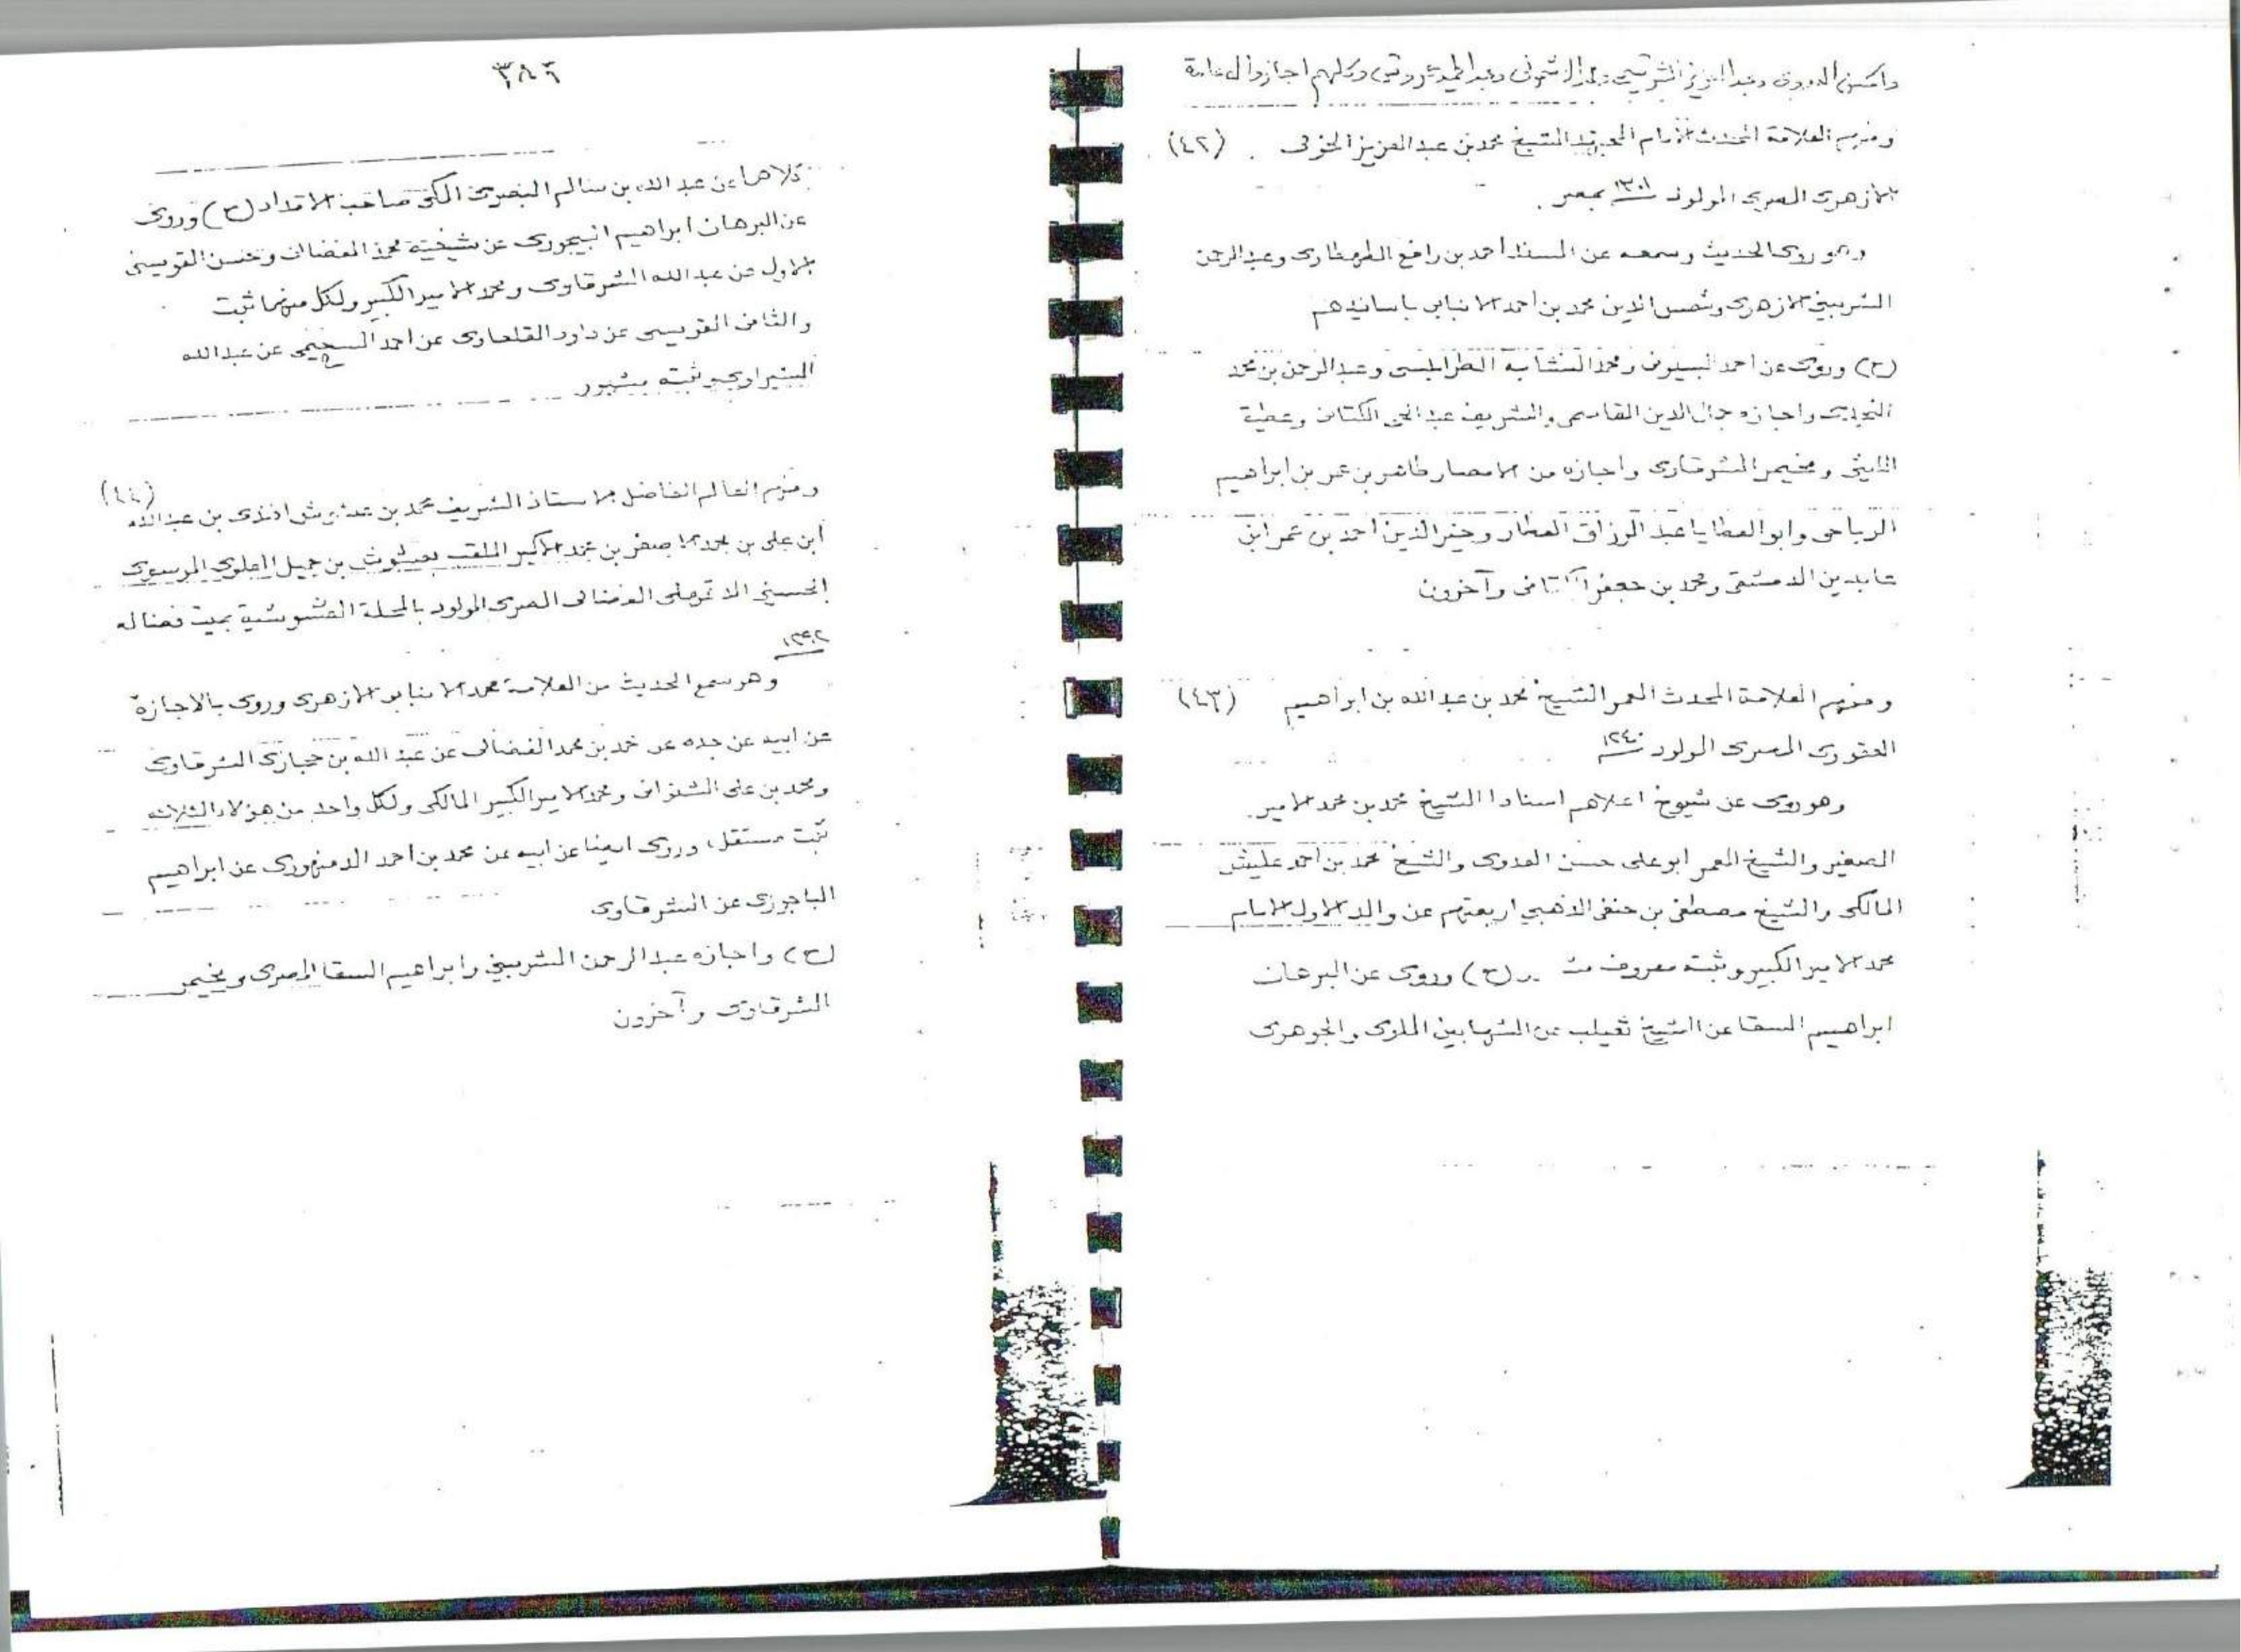 وعبد العزيز وكلهم اجازوا لى عامة
ومنهم العلامة المحدث الامام الشيخ محمد بن عبد العزيز الخولى (٤٢)
الازهرى المصرى المولود ١٣٠١ بمصر .
وهو روى الحديث وسمعه عن المسند احمد بن رافع الطهطاوى وعبد الرحمن
الشربينى الازهرى وشمس الدين محمد بن احمد الانبابى باسانيدهم
(ح) وروى عن احمد البسيونى ومحمد النشابه الطرابلسى وعبد الرحمن بن محمد
واجازه جمال الدين القاسمى والشريف عبد الحى الكتانى وعطية
ومخيمر الشرقاوى واجازه من الامصار طاهر بن عمر بن ابراهيم
الرياحى وابو العطايا عبد الرزاق العطار وخير الدين احمد بن عمر ابن
عابدين الدمشقى ومحمد بن جعفر الكتانى وآخرون
ومنهم العلامة المحدث المعمر الشيخ محمد بن عبد الله بن ابراهيم (٤٣)
العقورى المصرى المولود ١٢٤٠
وهو روى عن شيوخ اعلاهم اسنادا الشيخ محمد بن محمد الامير
الصغير والشيخ المعمر ابو على حسن العدوى والشيخ محمد بن احمد عليش
المالكى والشيخ مصطفى بن حنفى الذهبى اربعتهم عن والد الاول الامام
محمد الامير الكبير وثبته معروف (ح) وروى عن البرهان
ابراهيم السقا عن الشيخ ثعيلب عن الشهابين الملوى والجوهرى
٣٨٦
كلاهما عن عبد الله بن سالم البصرى المكى صاحب الامداد (ح) وروى
عن البرهان ابراهيم البيجورى عن شيخيه محمد الفضالى وحسن القويسنى
الاول عن عبد الله الشرقاوى ومحمد الامير الكبير ولكل منهما ثبت
والثانى القويسنى عن داود القلعاوى عن احمد السحيمى عن عبد الله
الشبراوى وثبته مشهور
ومنهم العالم الفاضل الاستاذ الشريف محمد بن افندى بن عبد الله (٤٤)
ابن على بن محمد الاصغر بن محمد الاكبر الملقب بن جميل العلوى الموسوى
الحسينى الفضالى المصرى المولود بالمحلة بميت فضاله
وهو سمع الحديث من العلامة محمد الانبابى الازهرى وروى بالاجازة
عن ابيه عن جده عن محمد بن محمد الفضالى عن عبد الله بن حجازى الشرقاوى
ومحمد بن على الشنوانى ومحمد الامير الكبير المالكى ولكل واحد من هؤلاء الثلاثه
ثبت مستقل، وروى ايضا عن ابيه عن محمد بن احمد الدمنهورى عن ابراهيم
الباجورى عن الشرقاوى
(ح) واجازه عبد الرحمن الشربينى وابراهيم السقا المصرى ومخيمر
الشرقاوى وآخرون